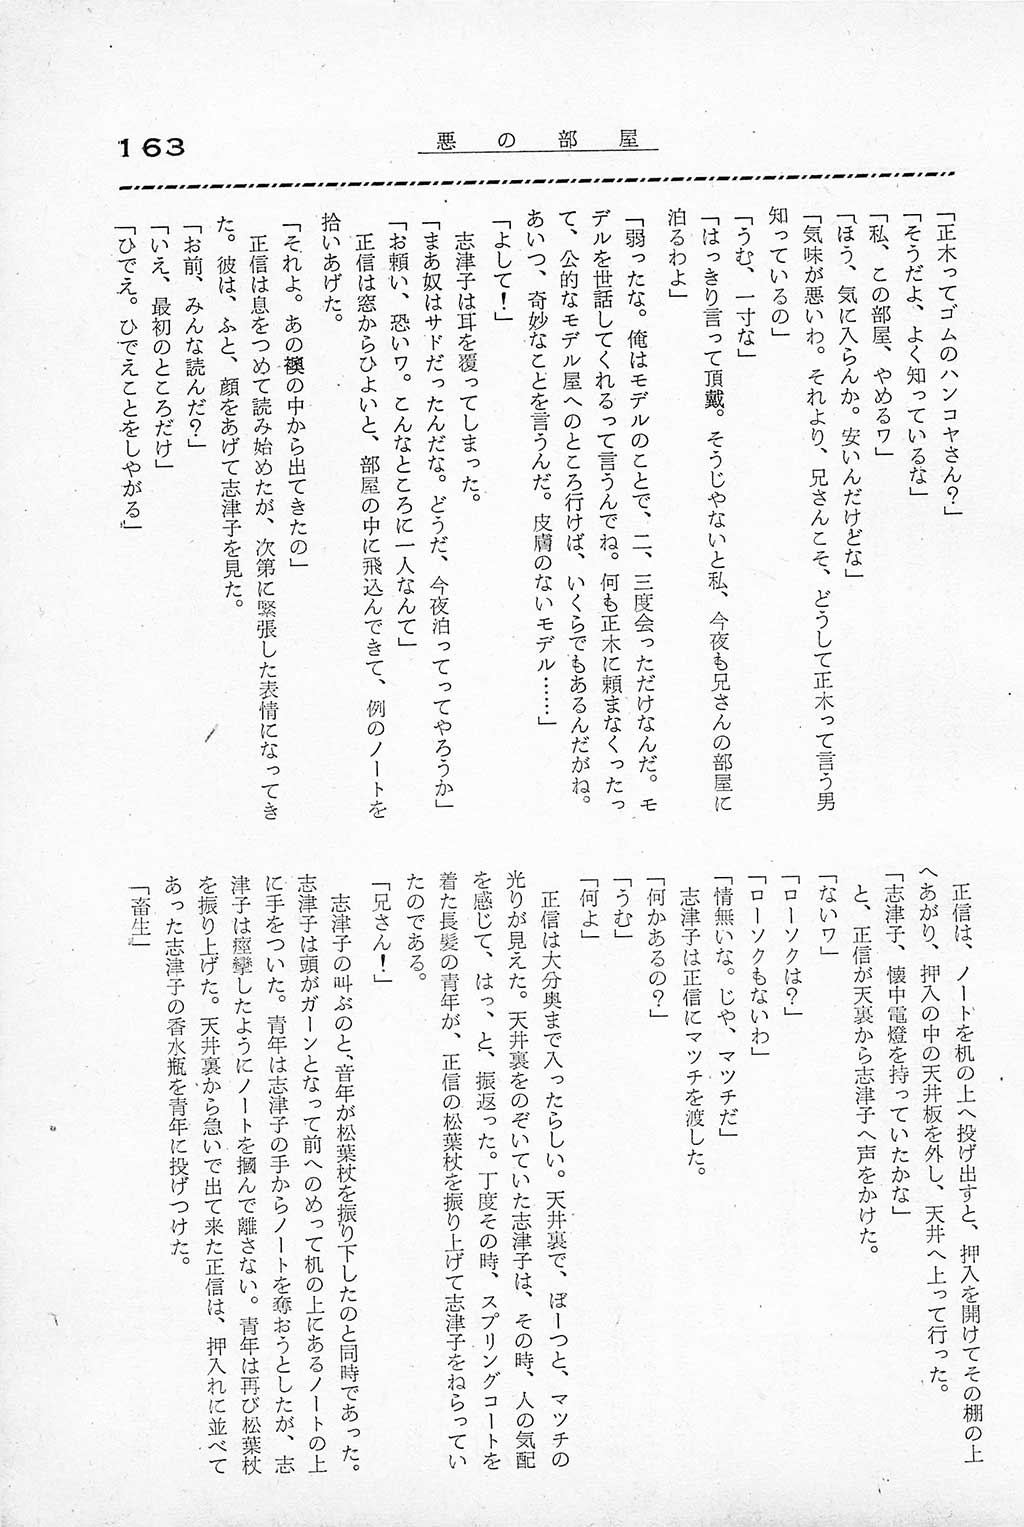 163
悪の部屋
「正木ってゴムのハンコヤさん？」
「そうだよ、よく知っているな」
「私、この部屋、やめるワ」
「ほう、気に入らんか。安いんだけどな」
「気味が悪いわ。それより、兄さんこそ、どうして正木って言う男
知っているの」
「うむ、一寸な」
「はっきり言って頂戴。そうじゃないと私、今夜も兄さんの部屋に
泊るわよ」
「弱ったな。俺はモデルのことで、二、三度会っただけなんだ。モ
デルを世話してくれるって言うんでね。何も正木に頼まなくったっ
て、公的なモデル屋へのところ行けば、いくらでもあるんだがね。
あいつ、奇妙なことを言うんだ。皮膚のないモデル……」
「よして！」
志津子は耳を覆ってしまった。
「まあ奴はサドだったんだな。どうだ、今夜泊ってってやろうか」
「お頼い、恐いワ。こんなところに一人なんて」
正信は窓からひよいと、部屋の中に飛込んできて、例のノートを
拾いあげた。
「それよ。あの襖の中から出てきたの」
正信は息をつめて読み始めたが、次第に緊張した表情になってき
た。彼は、ふと、顔をあげて志津子を見た。
「お前、みんな読んだ？」
「いえ、最初のところだけ」
「ひでえ。ひでえことをしやがる」
正信は、ノートを机の上へ投げ出すと、押入を開けてその棚の上
へあがり、押入の中の天井板を外し、天井へ上って行った。
「志津子、懐中電燈を持っていたかな」
と、正信が天裏から志津子へ声をかけた。
「ないワ」
「ローソクは？」
「ローソクもないわ」
「情無いな。じや、マツチだ」
志津子は正信にマツチを渡した。
「何かあるの？」
「うむ」
「何よ」
正信は大分奥まで入ったらしい。天井裏で、ぼーつと、マツチの
光りが見えた。天井裏をのぞいていた志津子は、その時、人の気配
を感じて、はっ、と、振返った。丁度その時、スプリングコートを
着た長髪の青年が、正信の松葉杖を振り上げて志津子をねらってい
たのである。
「兄さん！」
志津子の叫ぶのと、音年が松葉杖を振り下したのと同時であった。
志津子は頭がガーンとなって前へのめって机の上にあるノートの上
に手をついた。青年は志津子の手からノートを奪おうとしたが、志
津子は痙攣したようにノートを摑んで離さない。青年は再び松葉杖
を振り上げた。天井裏から急いで出て来た正信は、押入れに並べて
あった志津子の香水瓶を青年に投げつけた。
「畜生」